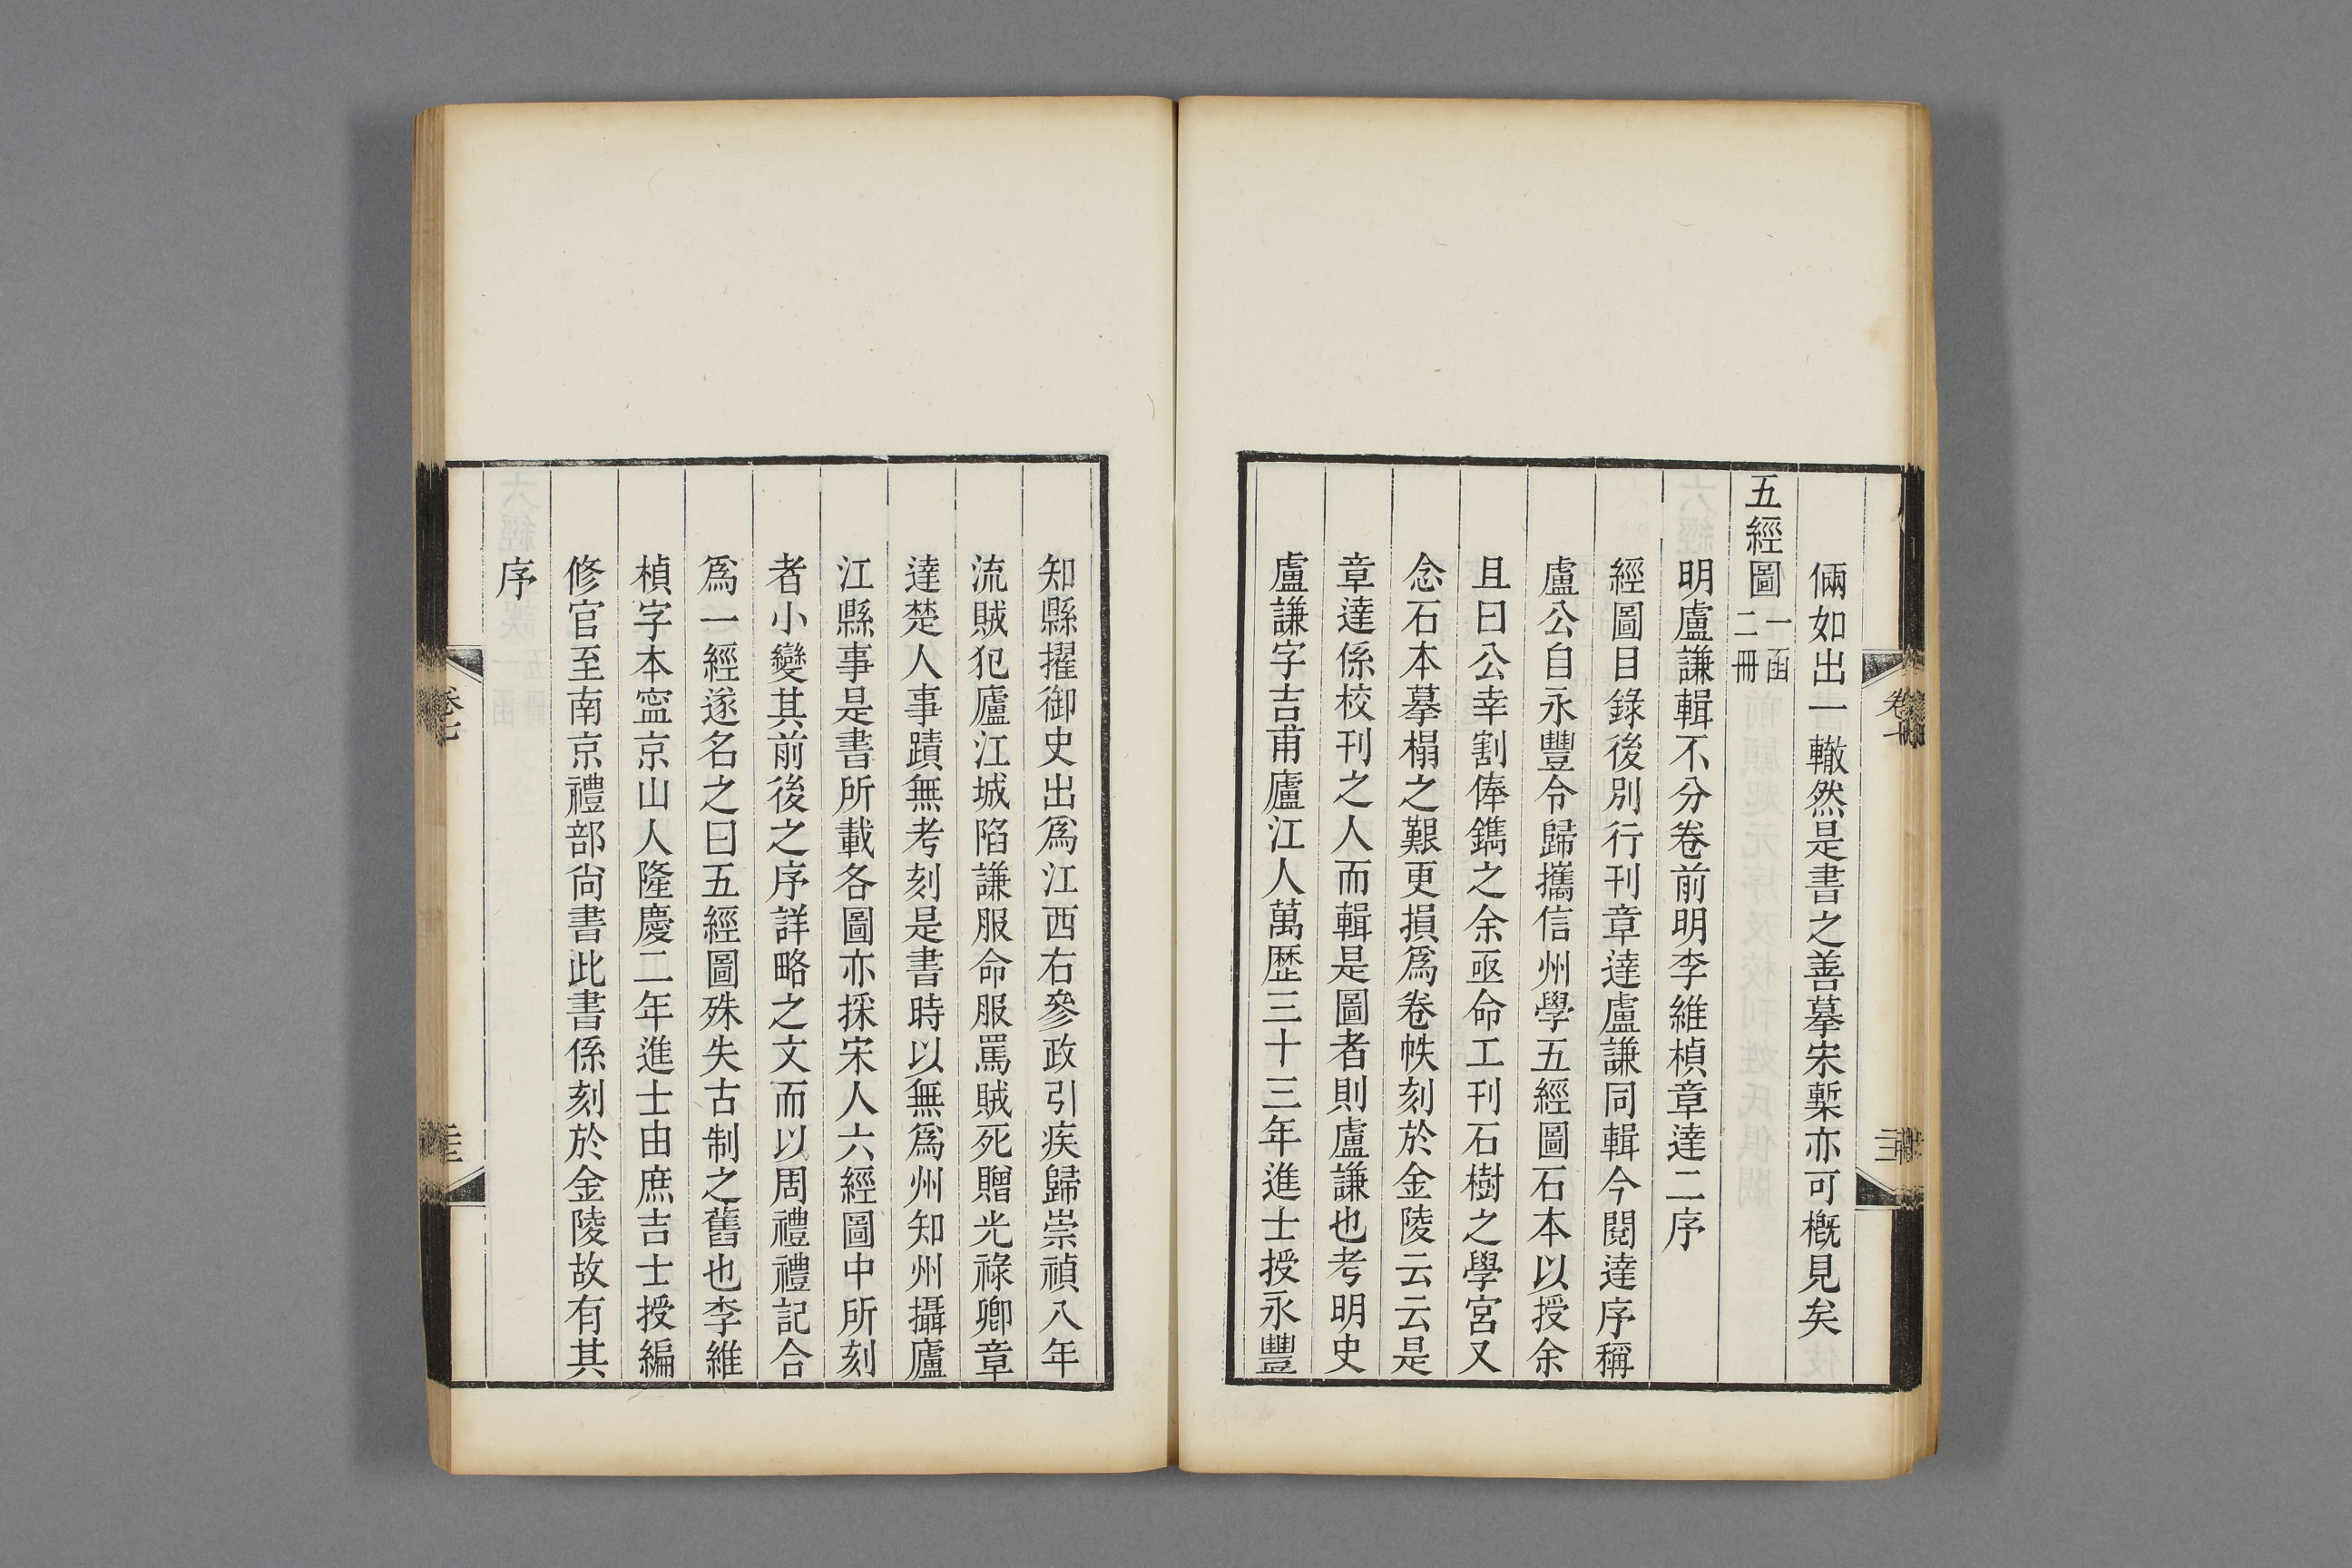 倆如出一轍然是書之善摹宋槧亦可槪見矣
五經圖一函二冊
明盧謙輯不分卷前明李維楨章達二序
經圖目錄後別行刊章達盧謙同輯今閱達序稱
盧公自永豐令歸攜信州學五經圖石本以授余
且曰公幸割俸鐫之余亟命工刊石樹之學宮又
念石本摹榻之艱更損爲卷帙刻於金陵云云是
章達係校刊之人而輯是圖者則盧謙也考明史
盧謙字吉甫廬江人萬歷三十三年進士授永豐
知縣擢御史出爲江西右參政引疾歸崇禎八年
流賊犯廬江城陷謙服命服罵賊死贈光祿卿章
達楚人事蹟無考刻是書時以無爲州知州攝廬
江縣事是書所載各圖亦採宋人六經圖中所刻
者小變其前後之序詳略之文而以周禮禮記合
爲一經遂名之曰五經圖殊失古制之舊也李維
楨字本寍京山人隆慶二年進士由庶吉士授編
修官至南京禮部尙書此書係刻於金陵故有其
序
卷七